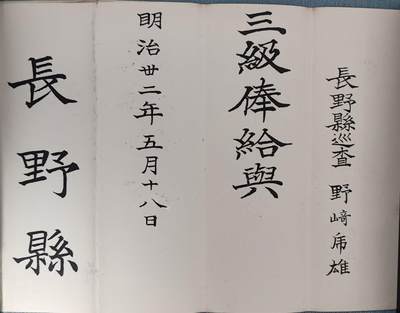 長野縣巡査 野﨑乕雄
三級俸給與
明治卅二年五月十八日
長野縣